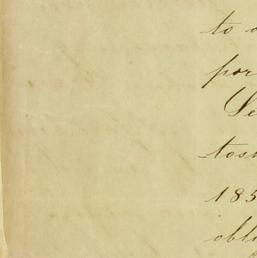 to
por
Se
tos
185
obli